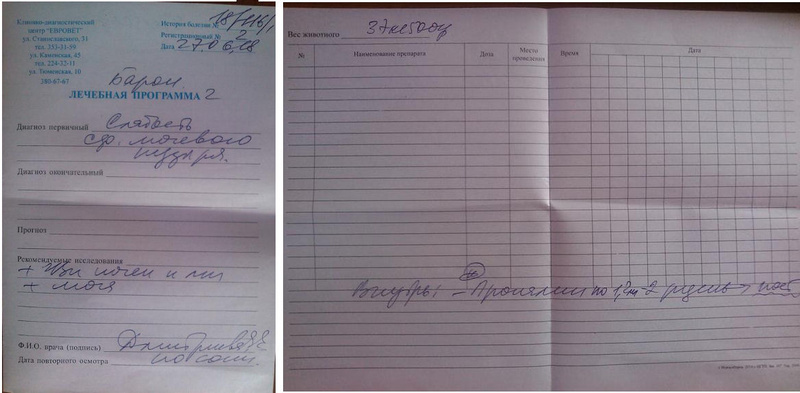 Клинико-диагностический
центр "ЕВРОВЕТ"
ул. Станиславского, 31
тел. 353-31-59
ул. Каменская, 45
тел. 224-32-11
ул. Тюменская, 10
280-67-67
История болезни № 18/116/1
Регистрационный № 2
Дата 27.06.18
Барон
ЛЕЧЕБНАЯ ПРОГРАММА 2
Диагноз первичный Слабость
сф. мочевого
пузыря.
Диагноз окончательный
Прогноз
Рекомендуемые исследования
+ Узи почек и мп
+ моча
Ф.И.О. врача (подпись) Дмитриева
Дата повторного осмотра по сост.
Вес животного 37кг500гр
№ Наименование препарата Дата Место проведения Время Дата
Внутрь: - Пропалин по 1,2 мл - 2 р/день